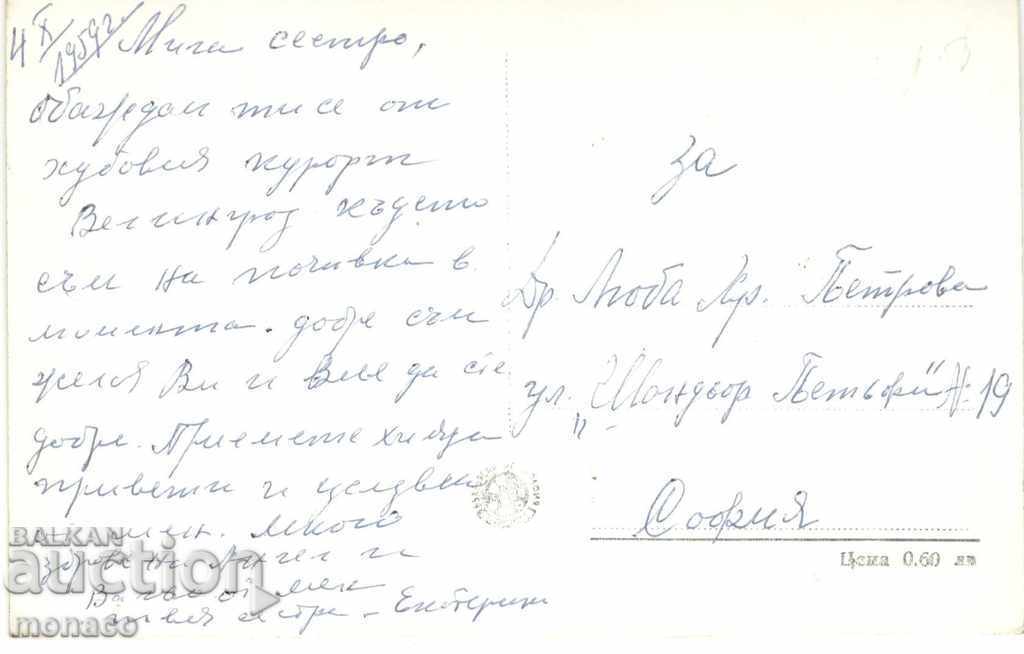 4 X 1959 г
Мила сестро,
обаждам ти се от
хубовия курорт
Велинград където
съм на почивка в
момента. добре съм
желая Ви и Вие да сте
добре. Приемете хиляда
привети и целувки
от мен. Много
здраве на Ангел и
Ва от мен
твоя сестра - Екатерина
за
Др. Люба Кр. Петрова
ул. "Шандьор Петьофи" № 19
София
Цена 0.60 лв
BALKAN
auction
monaco